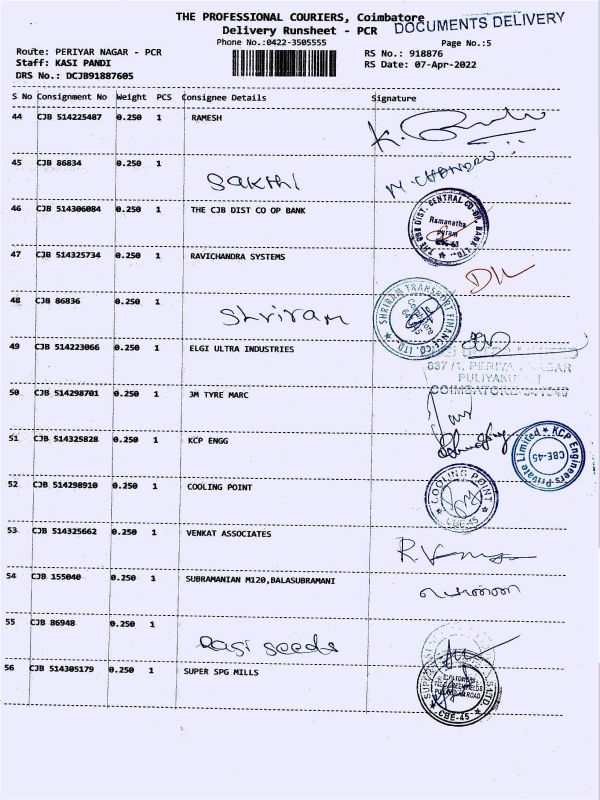 THE PROFESSIONAL COURIERS, Coimbatore
DOCUMENTS DELIVERY
Delivery Runsheet - PCR
Phone No.:0422-3505555
Page No.:5
Route: PERIYAR NAGAR - PCR
RS No.: 918876
Staff: KASI PANDI
RS Date: 07-Apr-2022
DRS No.: DCJB91887605
S No Consignment No Weight PCS Consignee Details Signature
44 CJB 514225487 0.250 1 RAMESH
45 CJB 86834 0.250 1 Sakthi M. CHANDRU
46 CJB 514306084 0.250 1 THE CJB DIST CO OP BANK
DIST. CENTRAL CO-OP. BANK LTD.
Ramanatha
Puram
CBE-45
47 CJB 514325734 0.250 1 RAVICHANDRA SYSTEMS
48 CJB 86836 0.250 1 Shriram
SHRIRAM TRANSPORT FINANCE CO. LTD.
Coimbatore
49 CJB 514223066 0.250 1 ELGI ULTRA INDUSTRIES
837/1,
COIMBATORE
50 CJB 514298701 0.250 1 3M TYRE MARC
51 CJB 514325828 0.250 1 KCP ENGG
KCP Engineers Private Limited
CBE-45
52 CJB 514298910 0.250 1 COOLING POINT
COOLING POINT
CBE-45
53 CJB 514325662 0.250 1 VENKAT ASSOCIATES
54 CJB 155040 0.250 1 SUBRAMANIAN M120,BALASUBRAMANI
55 CJB 86948 0.250 1 Rasi seeds
56 CJB 514305179 0.250 1 SUPER SPG MILLS
CBE-45